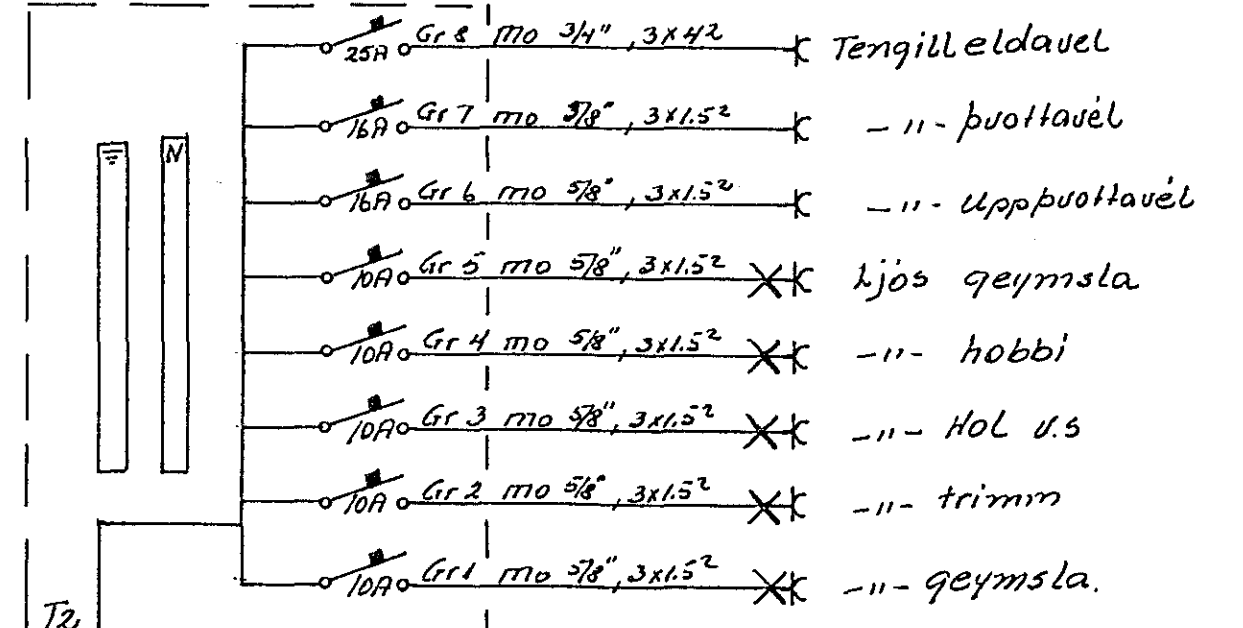 25A Gr 8 mo 3/4", 3x4² Tengill eldavel
16A Gr 7 mo 5/8", 3x1.5² -"- þvottavél
16A Gr 6 mo 5/8", 3x1.5² -"- Uppþvottavél
10A Gr 5 mo 5/8", 3x1.5² Ljós geymsla
10A Gr 4 mo 5/8", 3x1.5² -"- hobbi
10A Gr 3 mo 5/8", 3x1.5² -"- Hol v.s
10A Gr 2 mo 5/8", 3x1.5² -"- trimm
10A Gr 1 mo 5/8", 3x1.5² -"- geymsla.
N
T2